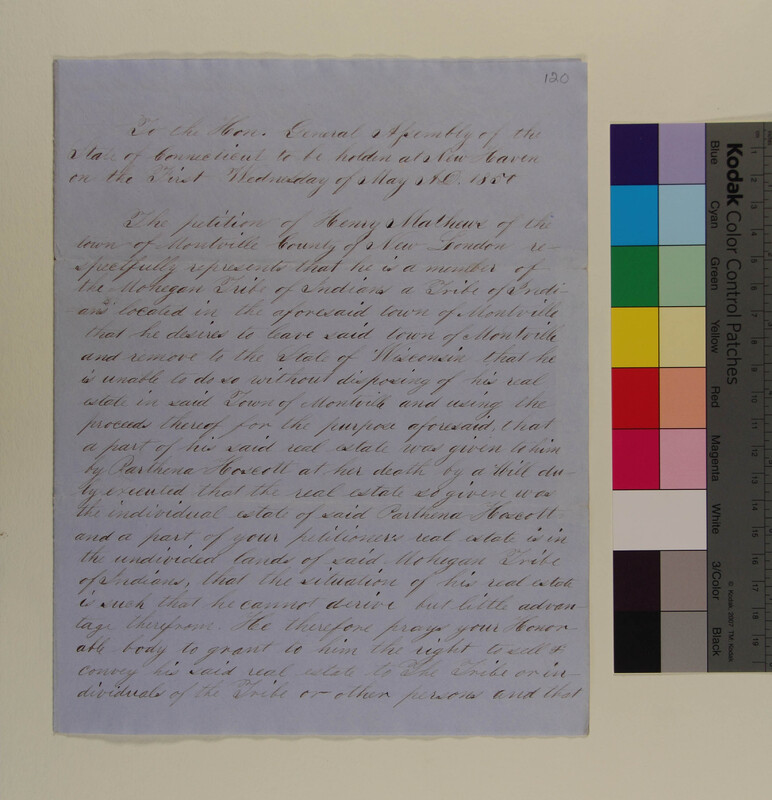 120
To the Hon. General Assembly of the
State of Connecticut to be holden at New Haven
on the First Wednesday of May A.D. 1850
The petition of Henry Mathews of the
town of Montville County of New London re-
spectfully represents that he is a member of
the Mohegan Tribe of Indians a Tribe of Indi-
ans located in the aforesaid town of Montville
that he desires to leave said town of Montville
and remove to the State of Wisconsin that he
is unable to do so without disposing of his real
estate in said Town of Montville and using the
proceeds thereof for the purpose aforesaid, that
a part of his said real estate was given to him
by Parthena Hoscott at her death by a Will du-
ly executed that the real estate so given was
the individual estate of said Parthena Hoscott
and a part of your petitioners real estate is in
the undivided lands of said Mohegan Tribe
of Indians, that the situation of his real estate
is such that he cannot derive but little advan-
tage therefrom. He therefore prays your Honor-
able body to grant to him the right to sell &
convey his said real estate to the Tribe or in-
dividuals of the Tribe or other persons and that
Kodak Color Control Patches
Blue
Cyan
Green
Yellow
Red
Magenta
White
3/Color
Black
© Kodak, 2007 TM: Kodak